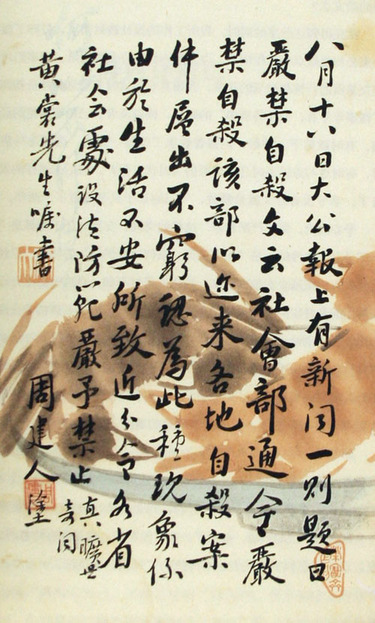 八月十八日大公報上有新闻一则題曰
嚴禁自殺文云社會部通令嚴
禁自殺该部以近来各地自殺案
件層出不窮認為此種现象係
由於生活不安所致近分令各省
社会處设法防范嚴予禁止
真曠世
奇闻
黄裳先生嘱書
周建人塗